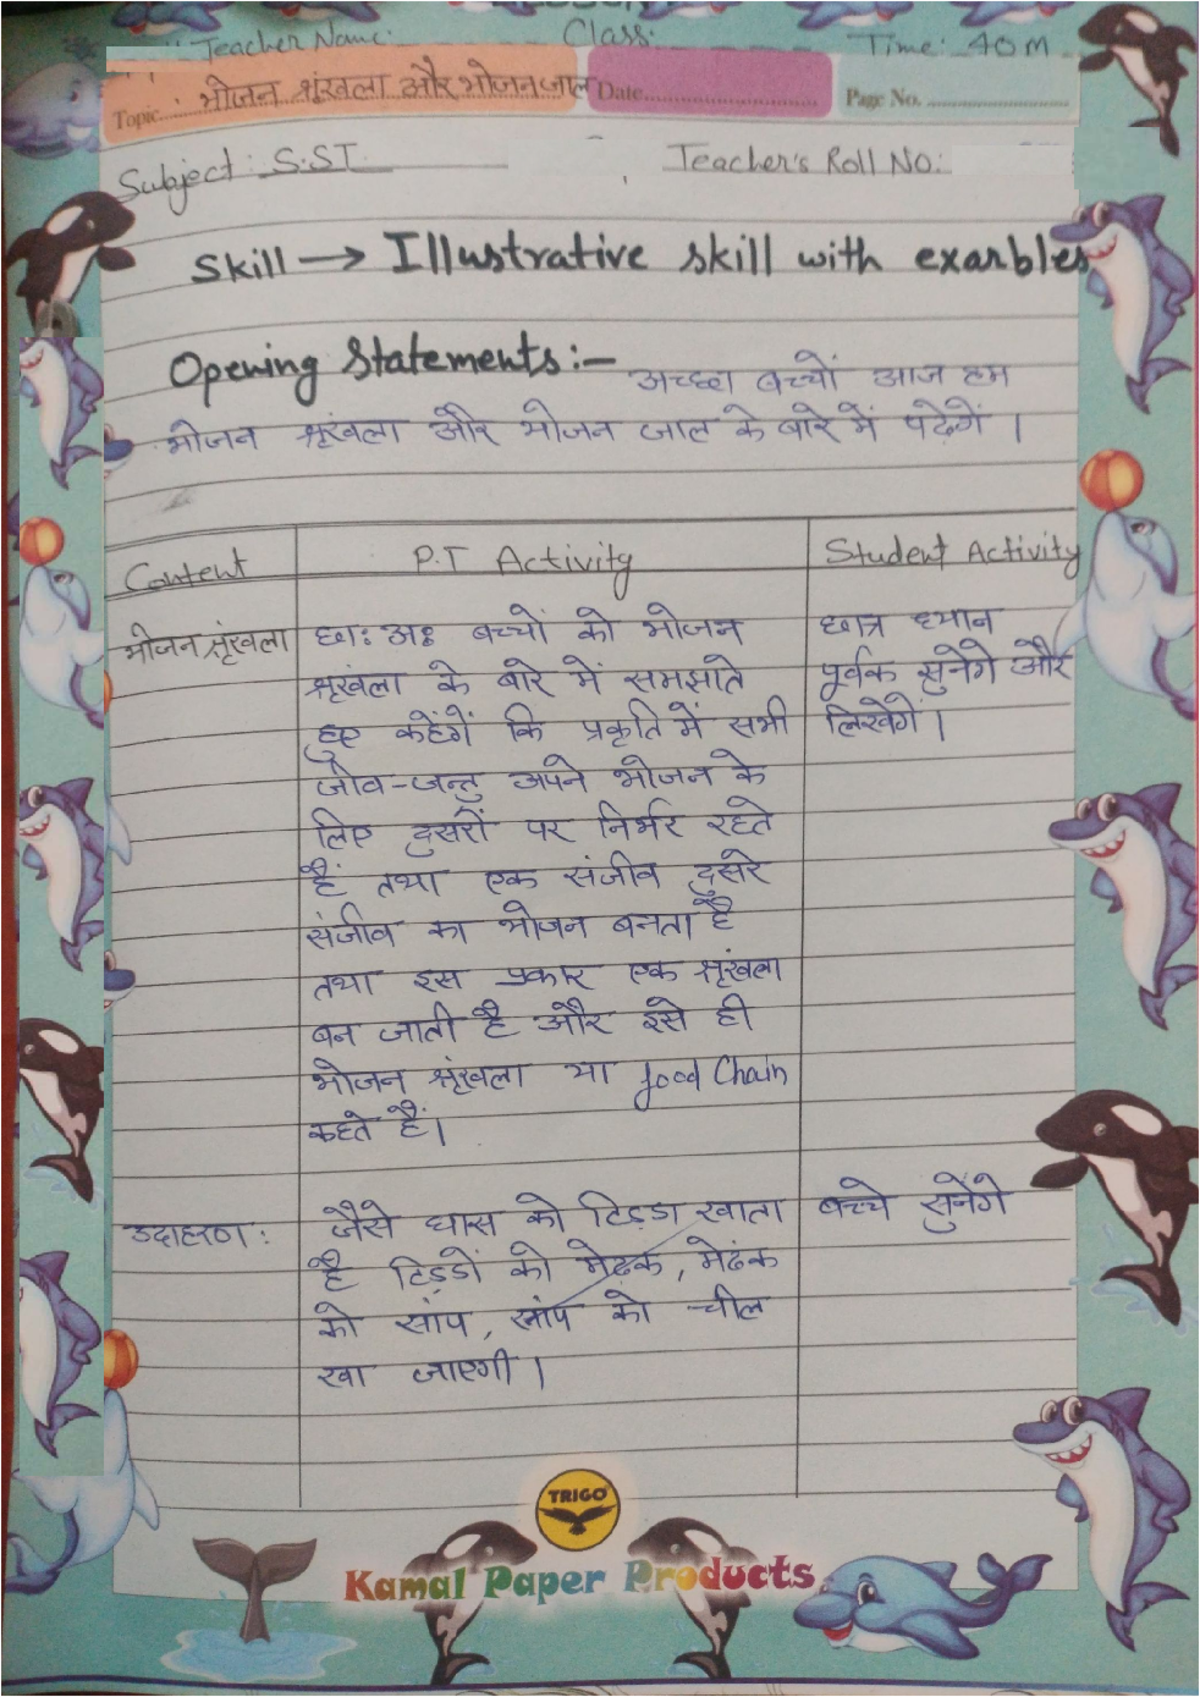 Teacher Name: Class: Time: 40M
Topic भोजन श्रृंखला और भोजन जाल Date Page No.
Subject: S.ST. Teacher's Roll No:
Skill → Illustrative skill with exanbles
Opening Statements:- अच्छा बच्चों आज हम
भोजन श्रृंखला और भोजन जाल के बारे में पढ़ेगें ।
Content P.T Activity Student Activity
भोजन श्रृंखला छा: अ: बच्चों को भोजन छात्र ध्यान
श्रृंखला के बारे में समझाते पूर्वक सुनेगे और
हुए कहेंगें कि प्रकृति में सभी लिखेगें ।
जीव-जन्तु अपने भोजन के
लिए दुसरों पर निर्भर रहते
हैं तथा एक संजीव दुसरे
संजीव का भोजन बनता है
तथा इस प्रकार एक श्रृंखला
बन जाती है और इसे ही
भोजन श्रृंखला या food Chain
कहते हैं।
उदाहरण: जैसे घास को टिड्डा खाता बच्चे सुनेंगे
है टिड्डों को मेढक, मेढंक
को सांप, सांप को चील
खा जाएगी ।
TRIGO
Kamal Paper Products